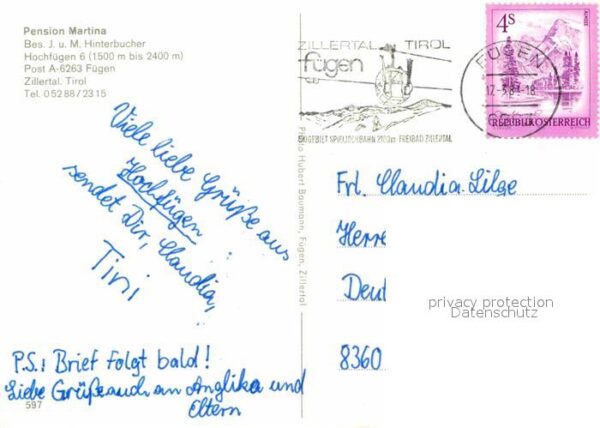 Pension Martina
Bes. J. u. M. Hinterbucher
Hochfügen 6 (1500 m bis 2400 m)
Post A-6263 Fügen
Zillertal. Tirol
Tel. 05288/2315
ZILLERTAL TIROL
fügen
SKIGEBIET SPIELJOCHBAHN 2100m FREIBAD ZILLERTAL
FÜGEN
17.-3.83-18
4S
REPUBLIK ÖSTERREICH
Viele liebe Grüße aus
Hochfügen
sendet Dir, Claudia,
Tini
P.S.: Brief folgt bald!
Liebe Grüße auch an Anglika und
Eltern
597
Photo Hubert Baumann, Fügen, Zillertal
Frl. Claudia Lilge
Herre
Deut
8360
privacy protection
Datenschutz